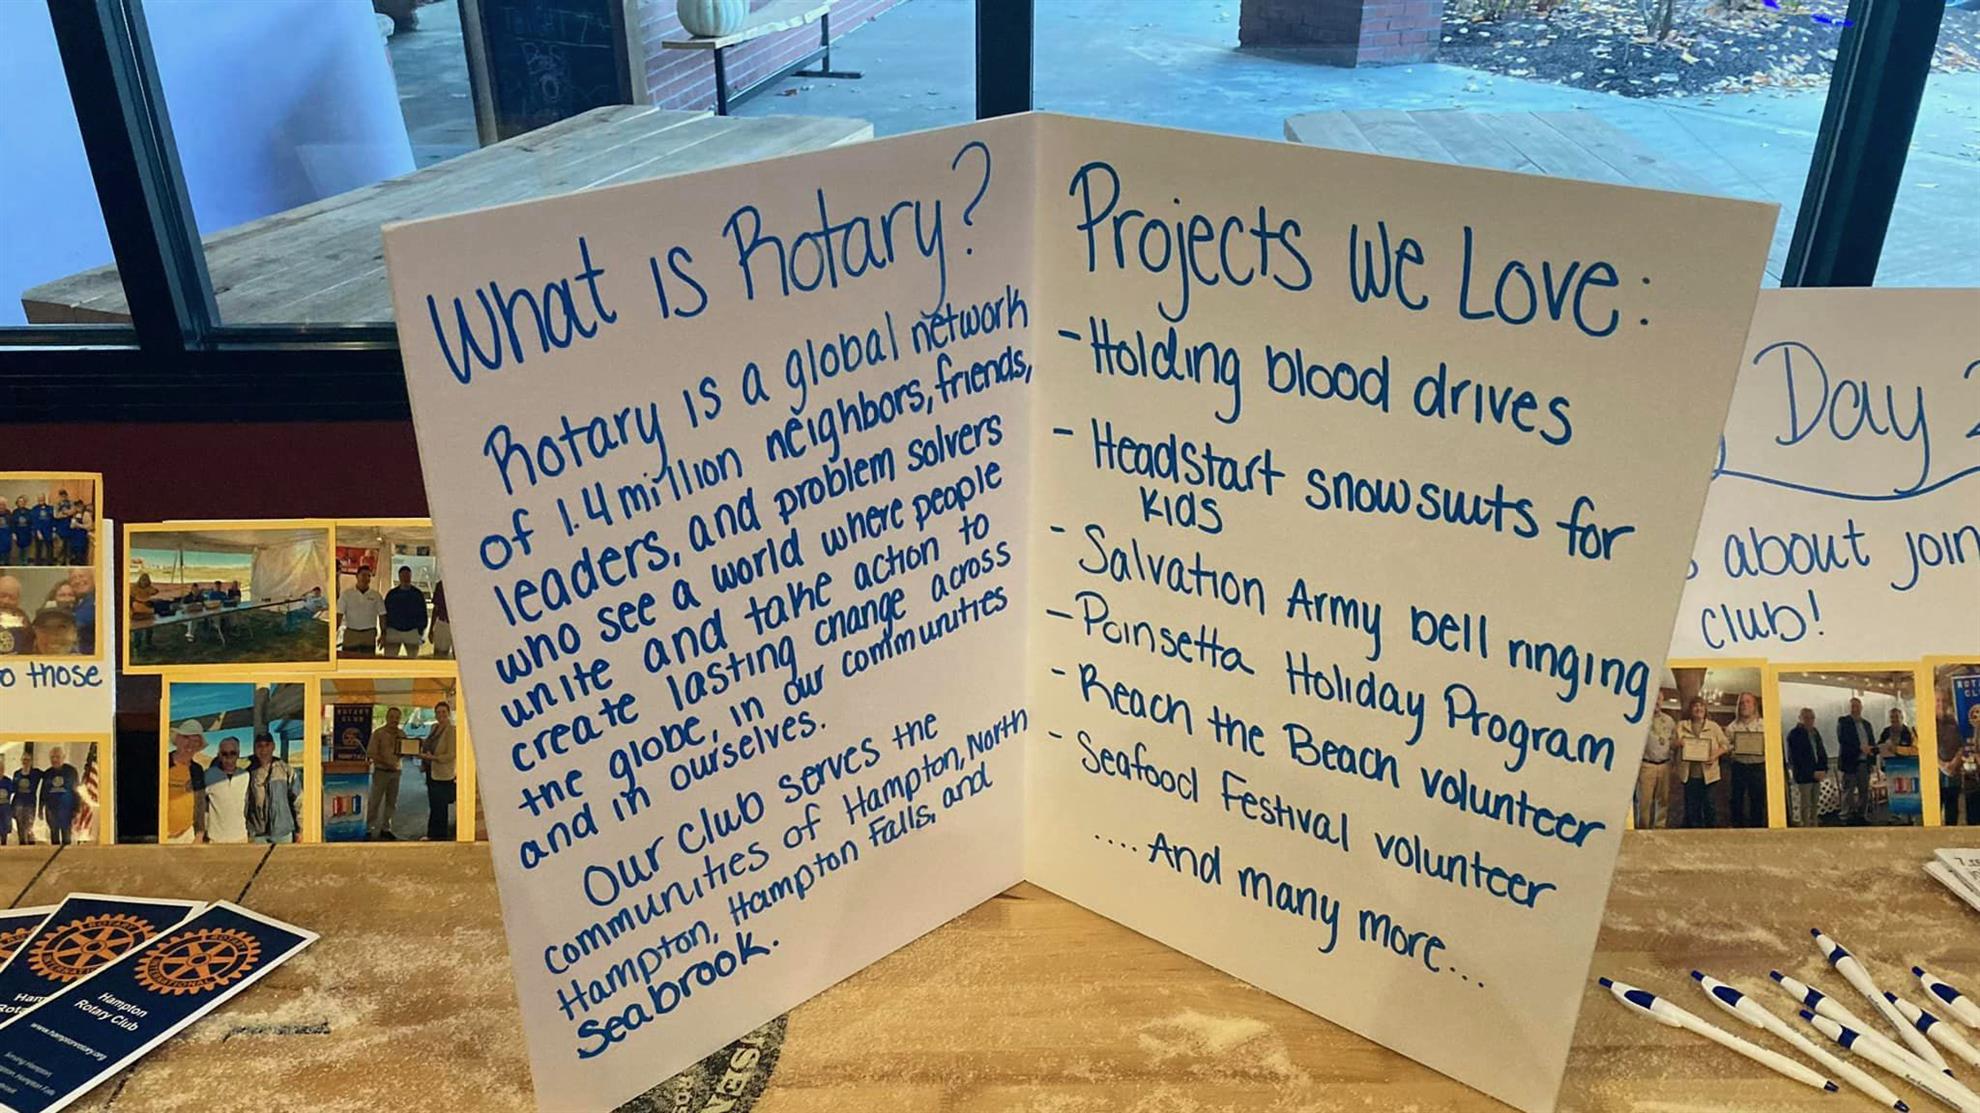 What is Rotary?
Rotary is a global network
of 1.4 million neighbors, friends,
leaders, and problem solvers
who see a world where people
unite and take action to
create lasting change across
the globe, in our communities
and in ourselves.
Our club serves the
communities of Hampton, North
Hampton, Hampton Falls, and
Seabrook.
Projects We Love:
- Holding blood drives
- Headstart snowsuits for
kids
- Salvation Army bell ringing
- Poinsetta Holiday Program
- Reach the Beach volunteer
- Seafood Festival volunteer
.... And many more...
Day
about join
club!
those
ROTARY
INTERNATIONAL
Hampton
Rotary Club
www.hamptonrotary.org